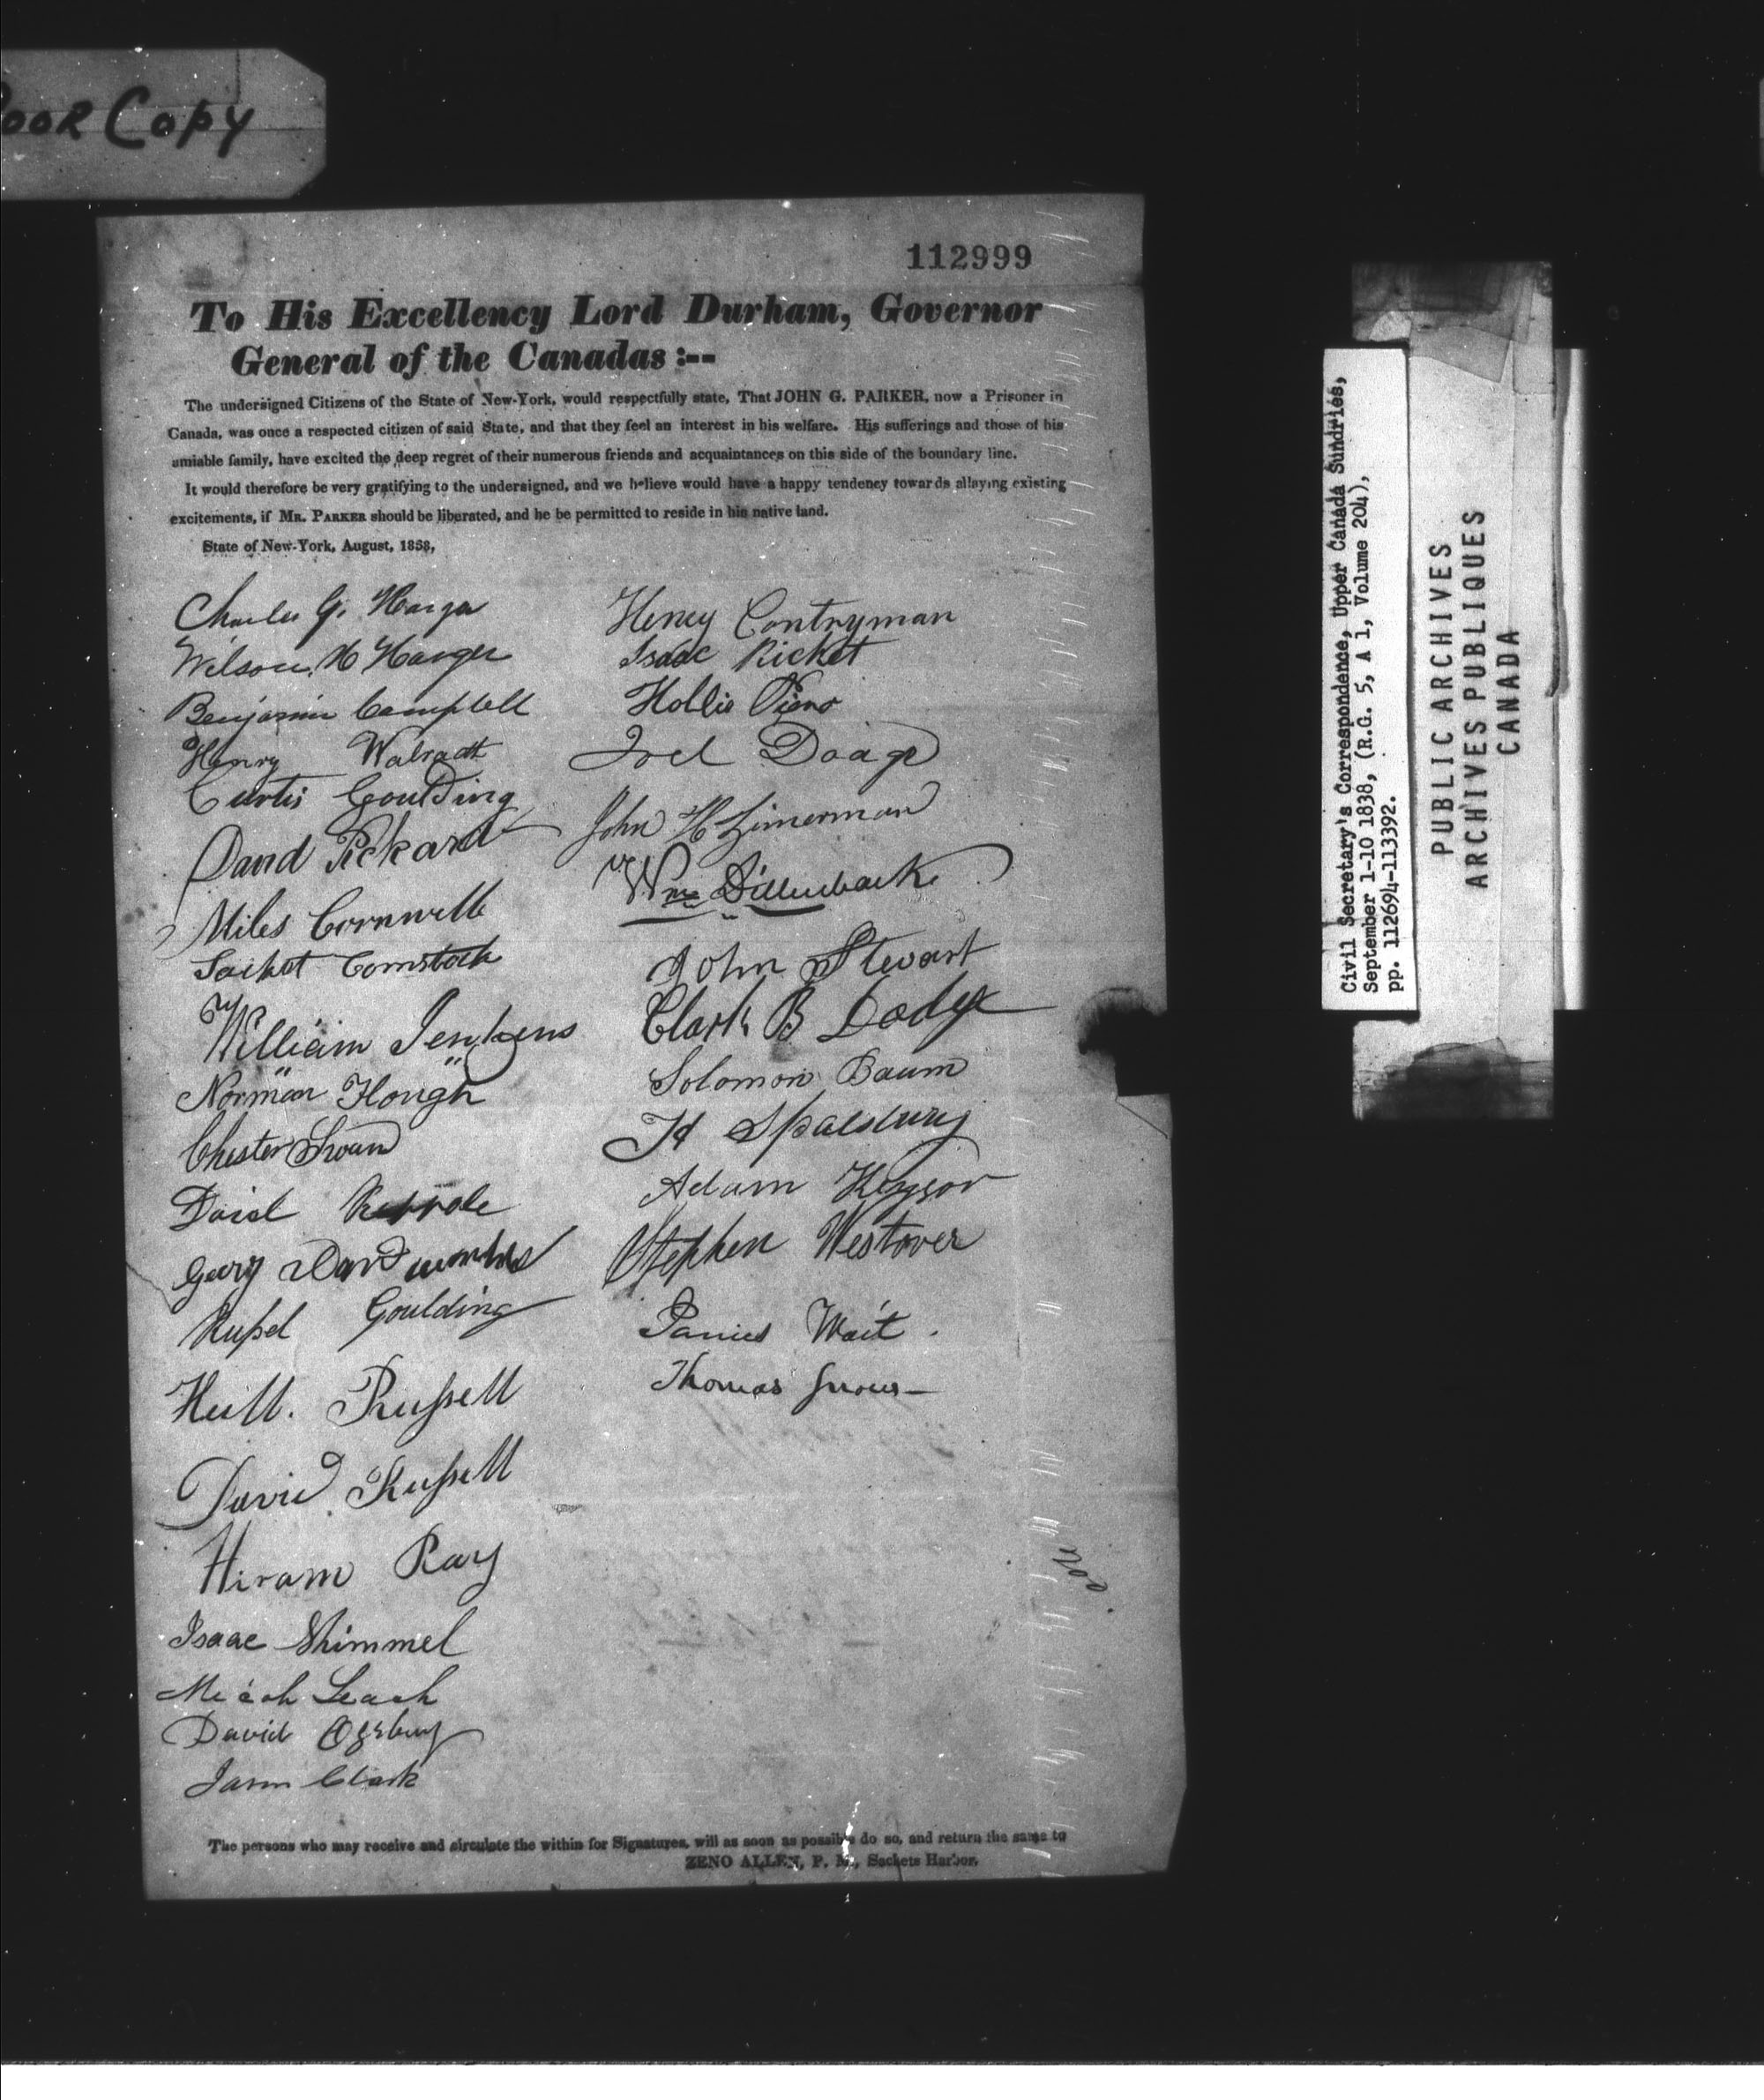 Poor Copy
112999
To His Excellency Lord Durham, Governor
General of the Canadas :--
The undersigned Citizens of the State of New-York, would respectfully state, That JOHN G. PARKER, now a Prisoner in
Canada, was once a respected citizen of said State, and that they feel an interest in his welfare. His sufferings and those of his
amiable family, have excited the deep regret of their numerous friends and acquaintances on this side of the boundary line.
It would therefore be very gratifying to the undersigned, and we believe would have a happy tendency towards allaying existing
excitements, if MR. PARKER should be liberated, and he be permitted to reside in his native land.
State of New-York, August, 1838,
Charles G. Harger
Wilson H Harger
Benjamin Campbell
Henry Walradt
Curtis Goulding
David Pickard
Miles Cornwell
Sacket Comstock
William Jenkens
Norman Hough
Chester Swan
David
Georg
Russel Goulding
Russell
David Russell
Hiram Ray
Isaac Shimmel
Micah Leach
David Ogsbury
Jason Clark
Henry Contryman
Isaac Ricket
Hollis
Joel Doage
John H Zimerman
Wm Dillenback
John Stewart
Clark B Dodge
Solomon Baum
Spalsbury
Adam Keysor
Stephen Westover
Wait
Thomas
The persons who may receive and circulate the within for Signatures, will as soon as possible do so, and return the same to
ZENO ALLEN, P. M., Sackets Harbor.
Civil Secretary's Correspondence, Upper Canada Sundries,
September 1-10 1838, (R.G. 5, A 1, Volume 204),
pp. 112694-113392.
PUBLIC ARCHIVES
ARCHIVES PUBLIQUES
CANADA